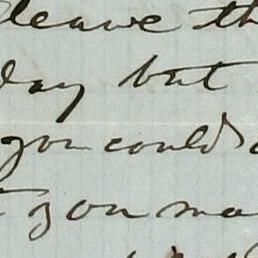 leave th
day but
you could
you ma